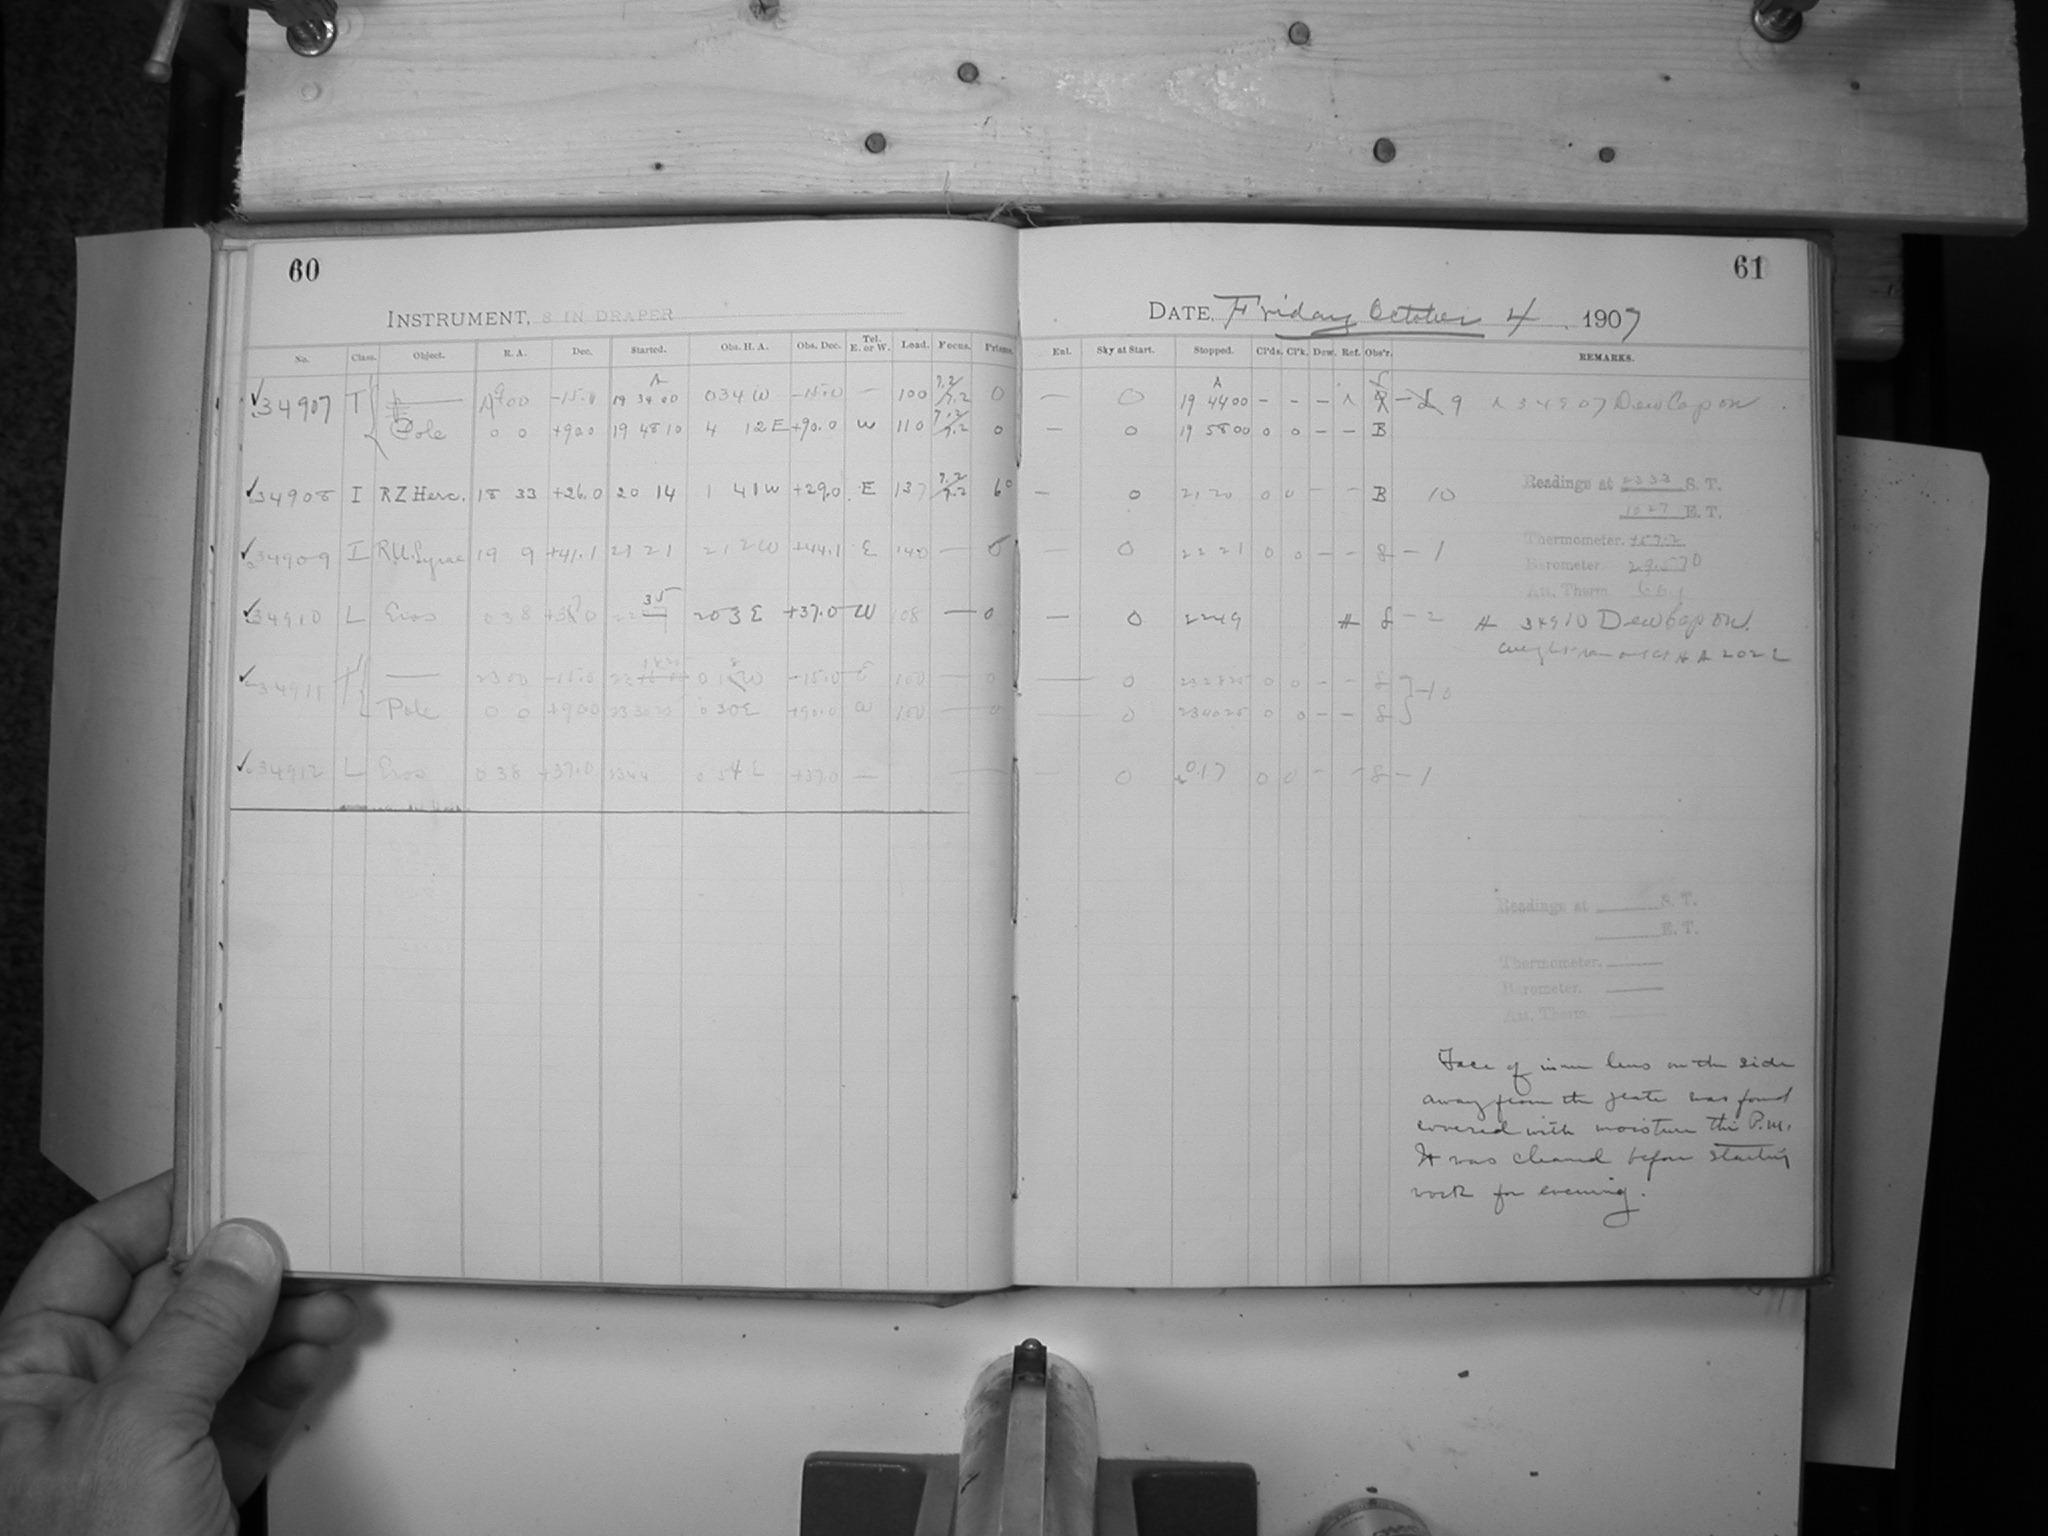 60
INSTRUMENT, 8 IN DRAPER
No. Class. Object. R. A. Dec. Started. Obs. H. A. Obs. Dec. Tel. E. or W. Load. Focus. Prisms.
34907 T 19 00 -15.0 19 34 00 0 34 W -15.0 — 100 7.2/7.2 0
Pole 0 0 +90.0 19 48 10 4 12 E +90.0 W 110 7.2/7.2 0
34908 I RZ Herc. 18 33 +26.0 20 14 1 41 W +29.0 E 137 7.2/7.2 6°
34909 I RU. Lyrae 19 9 +41.1 21 21 2 12 W +44.1 E 140 —
34910 L Eros 0 38 22 35 2 03 E +37.0 W 108 — 0
34911 — 23 00 -15.0 -15.0 E 100 — 0
Pole 0 0 +90.0 23 30 25 0 30 E +90.0 W 100 — 0
34912 L Eros 0 38 +37.0 23 44 0 54 E +37.0 —
61
DATE, Friday October 4, 1907
Enl. Sky at Start. Stopped. Cl'ds. Cl'k. Dew. Ref. Obs'r. REMARKS.
— 0 19 44 00 - - - 9 34907 Dew Cap on.
— 0 19 58 00 0 0 - - B
— 0 21 20 0 0 - - B 10
— 0 22 21 0 0 - - 8 - 1
— 0 22 49 # 8 - 2 # 34910 Dew Cap on.
— 0 0 0 - - 8
— 0 23 40 25 0 0 - - 8 - 10
— 0 0 17 0 0 - - 8 - 1
Readings at 2333 S. T.
1027 E. T.
Thermometer.
Barometer.
Att. Therm.
Readings at S. T.
E. T.
Thermometer.
Barometer.
Att. Therm.
Face of inner lens on the side
away from the plate was found
covered with moisture this P.M.
It was cleaned before starting
work for evening.